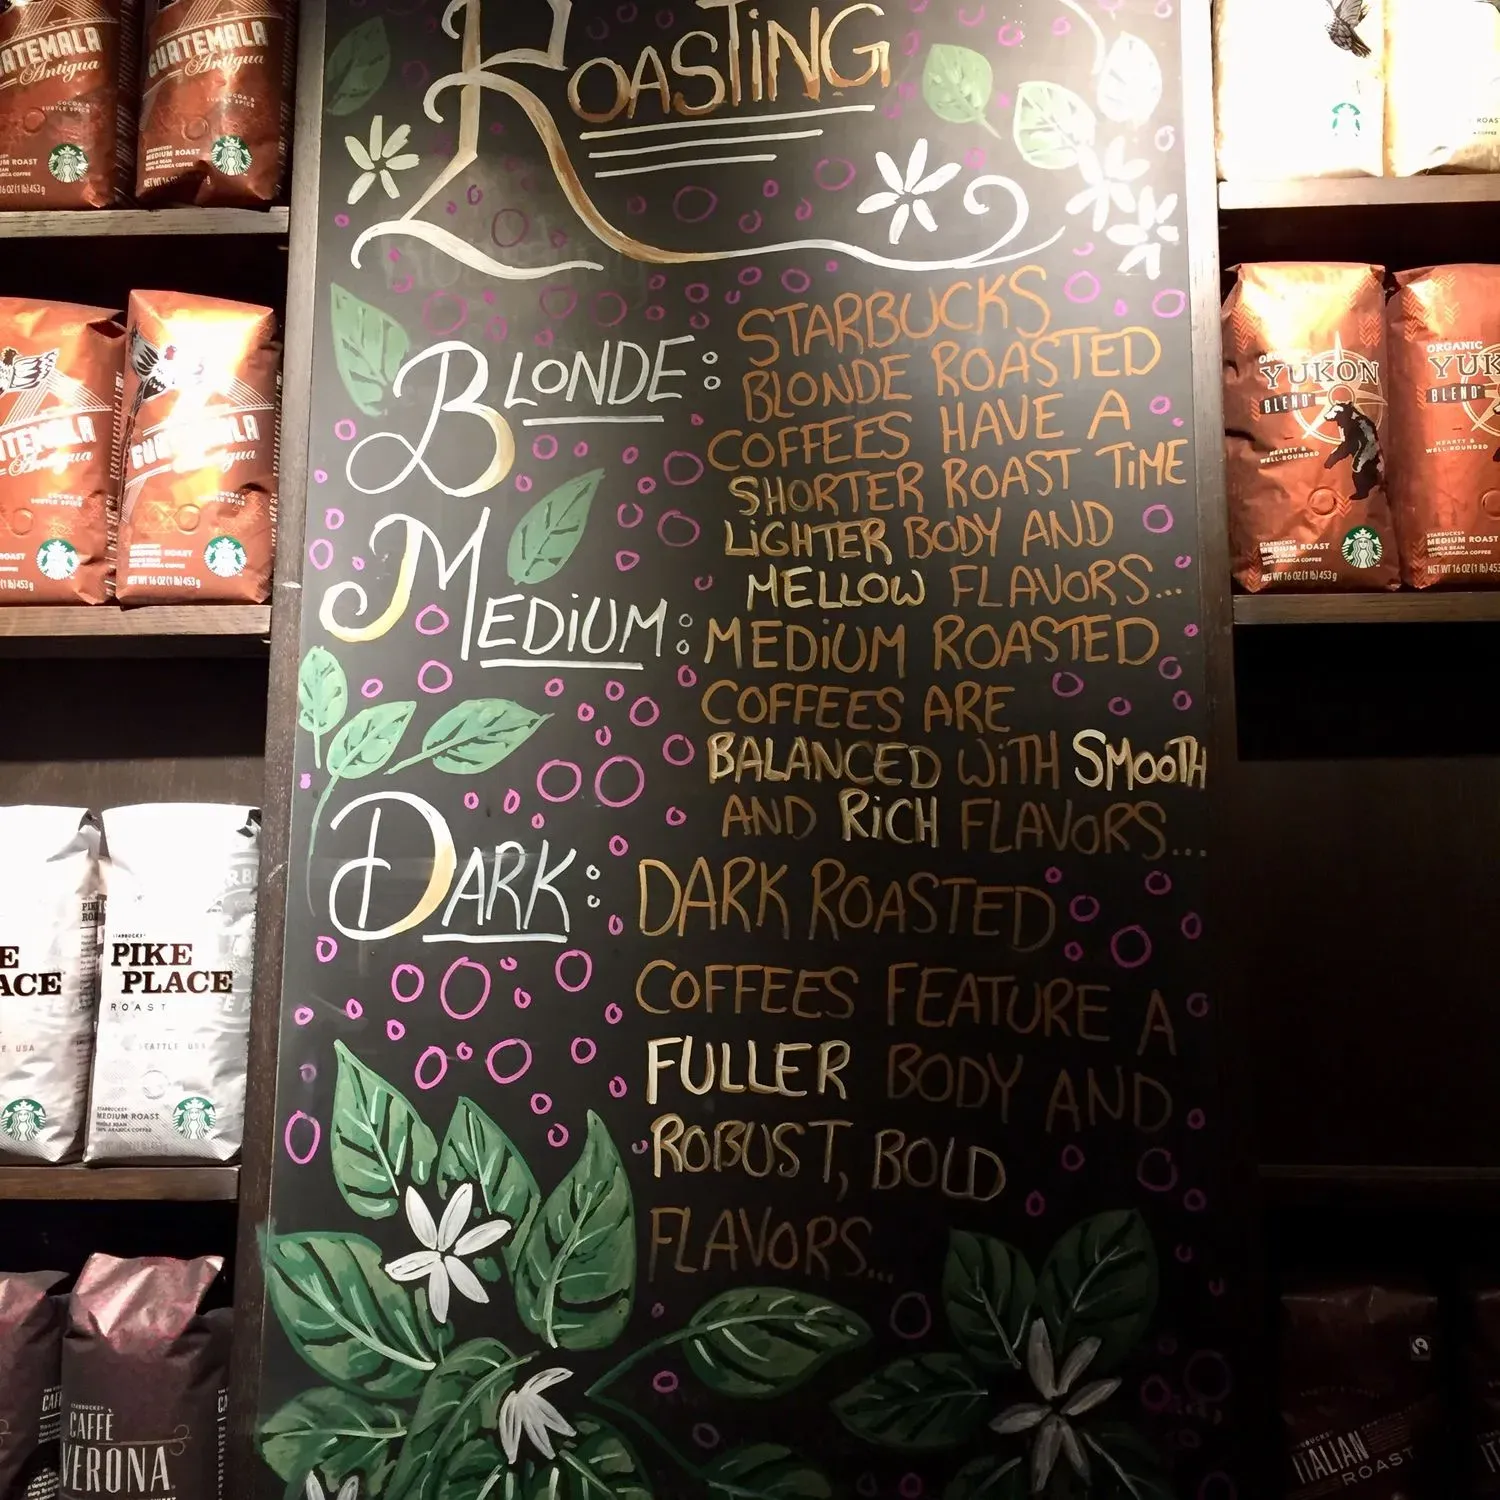 ROASTING
BLONDE:
STARBUCKS
BLONDE ROASTED
COFFEES HAVE A
SHORTER ROAST TIME
LIGHTER BODY AND
MELLOW FLAVORS...
MEDIUM:
MEDIUM ROASTED
COFFEES ARE
BALANCED WITH SMOOTH
AND RICH FLAVORS...
DARK:
DARK ROASTED
COFFEES FEATURE A
FULLER BODY AND
ROBUST, BOLD
FLAVORS...
GUATEMALA
Antigua
COCOA &
SUBTLE SPICE
MEDIUM ROAST
WHOLE BEAN
100% ARABICA COFFEE
16 OZ (1 lb) 453 g
GUATEMALA
Antigua
STARBUCKS
MEDIUM ROAST
NET WT 16 OZ (1 lb) 453 g
PIKE
PLACE
ROAST
SEATTLE USA
STARBUCKS
MEDIUM ROAST
WHOLE BEAN
100% ARABICA COFFEE
CAFFÈ
VERONA
ORGANIC
YUKON
BLEND
HEARTY &
WELL-ROUNDED
STARBUCKS
MEDIUM ROAST
WHOLE BEAN
100% ARABICA COFFEE
NET WT 16 OZ (1 lb) 453 g
ORGANIC
YUK
BLEND
HEARTY &
WELL-ROUNDED
STARBUCKS
MEDIUM ROAST
WHOLE BEAN
100% ARABICA COFFEE
NET WT 16 OZ (1 lb) 453
ITALIAN
ROAST